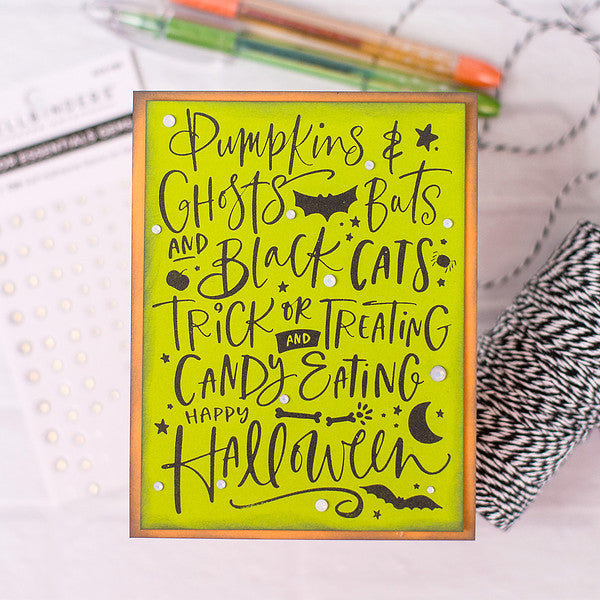 Pumpkins &
Ghosts Bats
AND Black CATS
TRICK OR TREATING
AND
CANDY EATING
HAPPY
Halloween